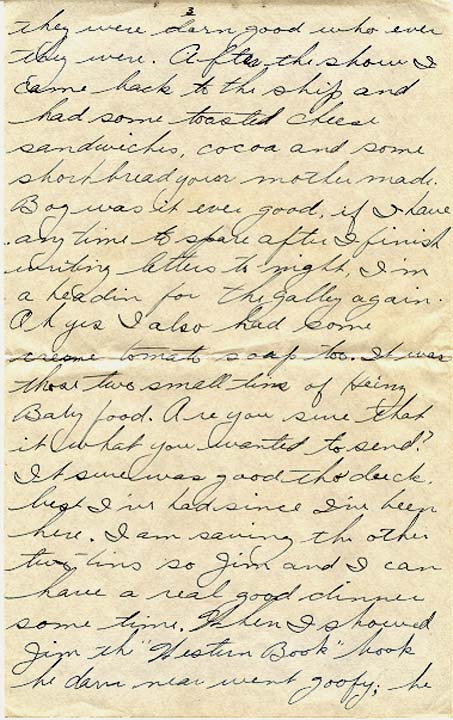 3
they were darn good who ever
they were. After the show I
came back to the ship and
had some toasted cheese
sandwiches, cocoa and some
shortbread your mother made.
Boy was it ever good, if I have
any time to spare after I finish
writing letters to night, I'm
a headin for the galley again.
Oh yes I also had some
creame tomato soap too. It was
those two small tins of Heinz
Baby food. Are you sure that
it what you wanted to send?
It sure was good tho duck.
best I've had since I've been
here. I am saving the other
two tins so Jim and I can
have a real good dinner
some time. When I showed
Jim the "Western Book" book
he darn near went goofy; he